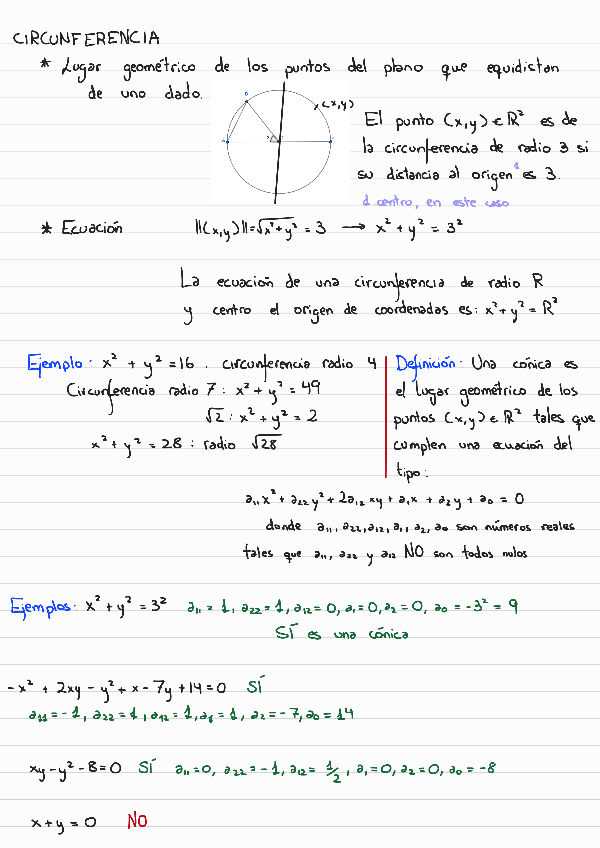 CIRCUNFERENCIA
* Lugar geométrico de los puntos del plano que equidistan
de uno dado.
(x,y)
El punto (x,y) ∈ R² es de
la circunferencia de radio 3 si
su distancia al origen es 3.
↓ centro, en este caso
* Ecuación ||(x,y)||=√x²+y² = 3 → x² + y² = 3²
La ecuación de una circunferencia de radio R
y centro el origen de coordenadas es: x²+y² = R²
Ejemplo: x² + y² = 16 . circunferencia radio 4
Circunferencia radio 7 : x² + y² = 49
√2 : x² + y² = 2
x² + y² = 28 : radio √28
Definición: Una cónica es
el lugar geométrico de los
puntos (x,y) ∈ R² tales que
cumplen una ecuación del
tipo:
a₁₁x² + a₂₂y² + 2a₁₂xy + a₁x + a₂y + a₀ = 0
donde a₁₁, a₂₂, a₁₂, a₁, a₂, a₀ son números reales
tales que a₁₁, a₂₂ y a₁₂ NO son todos nulos
Ejemplos: x² + y² = 3² a₁₁ = 1, a₂₂ = 1, a₁₂ = 0, a₁ = 0, a₂ = 0, a₀ = -3² = 9
SÍ es una cónica
-x² + 2xy - y² + x - 7y + 14 = 0 SÍ
a₁₁ = -1, a₂₂ = 1, a₁₂ = 1, a₁ = 1, a₂ = -7, a₀ = 14
xy - y² - 8 = 0 SÍ a₁₁ = 0, a₂₂ = -1, a₁₂ = 1/2, a₁ = 0, a₂ = 0, a₀ = -8
x + y = 0 NO